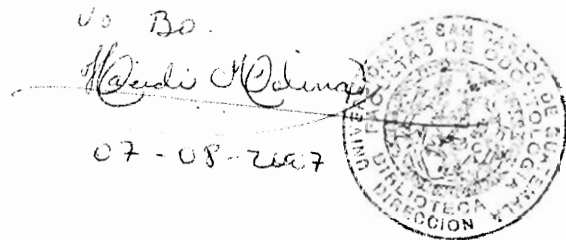 Vo Bo.
Heidi Molina
07-08-2007
UNIVERSIDAD DE SAN CARLOS DE GUATEMALA
FACULTAD DE ODONTOLOGIA
BIBLIOTECA
DIRECCION